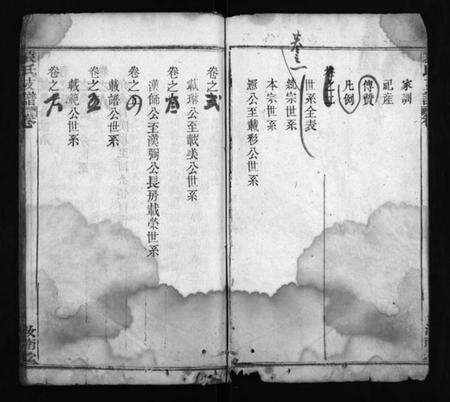 家訓
祀産
傳贊
凡例
卷一
世系全表
總宗世系
本宗世系
遷公至載彩公世系
卷之弍
載琳公至載美公世系
卷之
漢師公至漢弼公長房載榮世系
卷之四
載譜公世系
卷之五
載祀公世系
卷之六
袁氏支譜
卷
汝南堂